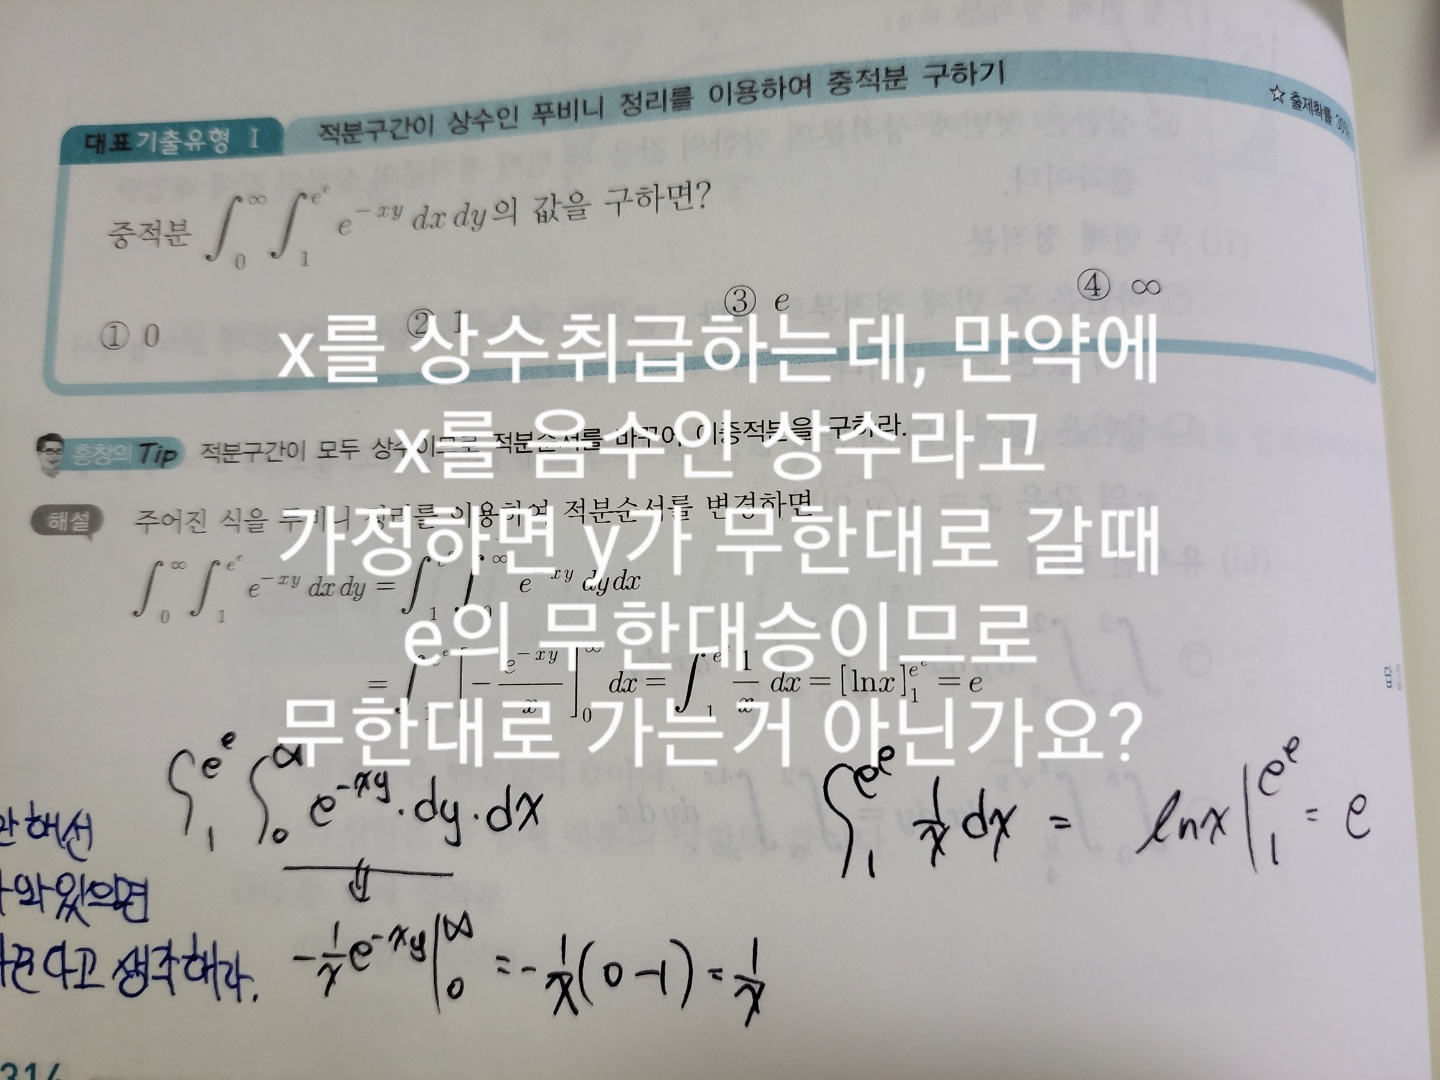 대표기출유형 I 적분구간이 상수인 푸비니 정리를 이용하여 중적분 구하기
☆ 출제확률
중적분 ∫₀^∞ ∫₁^{e^e} e^{-xy} dx dy의 값을 구하면?
① 0 ② 1 ③ e ④ ∞
x를 상수취급하는데, 만약에
x를 음수인 상수라고
가정하면 y가 무한대로 갈때
e의 무한대승이므로
무한대로 가는거 아닌가요?
홍창의 Tip 적분구간이 모두 상수이므로 적분순서를 바꾸어 이중적분을 구하라.
해설 주어진 식을 푸비니 정리를 이용하여 적분순서를 변경하면
∫₀^∞ ∫₁^{e^e} e^{-xy} dx dy = ∫₁^{e^e} ∫₀^∞ e^{-xy} dy dx
= ∫₁^{e^e} [-e^{-xy}/x]₀^∞ dx = ∫₁^{e^e} 1/x dx = [ln x]₁^{e^e} = e
답
∫₁^{e^e} ∫₀^∞ e^{-xy}·dy·dx
∫₁^{e^e} 1/x dx = lnx|₁^{e^e} = e
해선
와있으면
다고 생각해라.
-1/x e^{-xy}|₀^∞ = -1/x(0-1) = 1/x
314